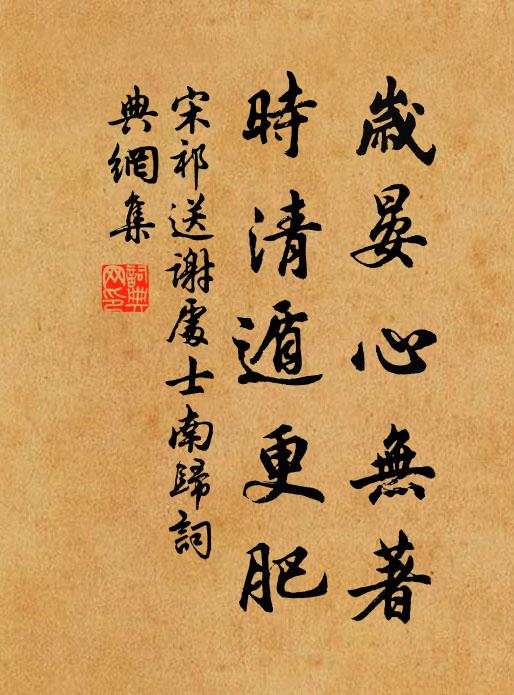 歲晏心無著
時清遁更肥
宋祁送謝處士南歸詞
典網集
詞典網印